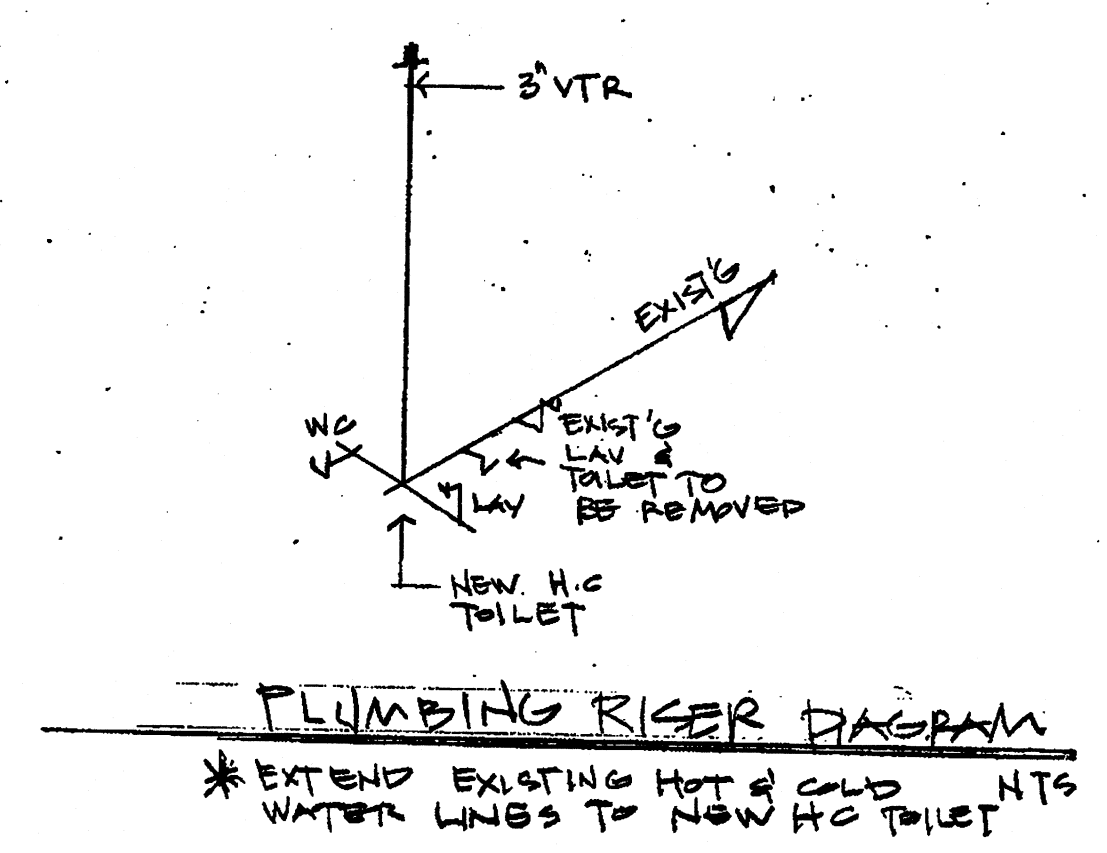 3" VTR
EXIST'G
WC
EXIST'G
LAV &
TOILET TO
BE REMOVED
LAV
NEW H.C
TOILET
PLUMBING RISER DIAGRAM
* EXTEND EXISTING HOT & COLD NTS
WATER LINES TO NEW HC TOILET